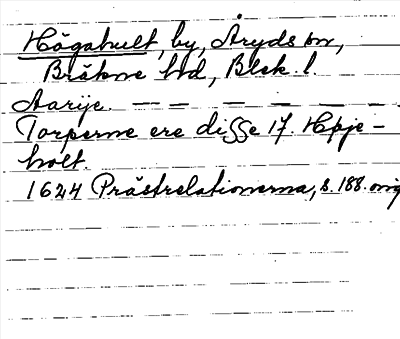 Högahult, by, Åryds sn,
Bräkne hd, Blek. l.
Aarije. — — — — — —
Torperne ere disse 17. Høje-
holt.
1624 Prästrelationerna, s. 188. orig